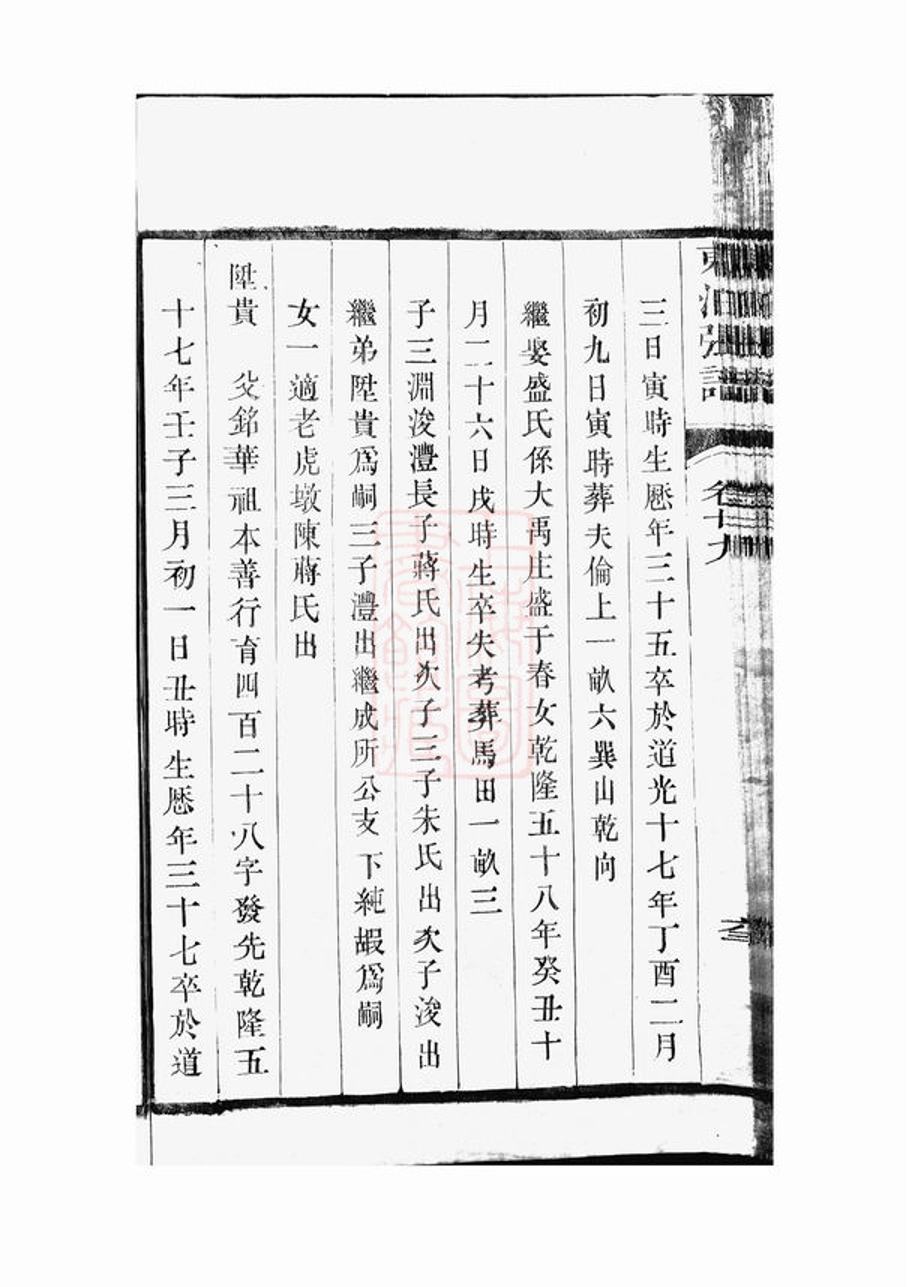 卷廿九
三日寅時生厯年三十五卒於道光十七年丁酉二月
初九日寅時葬夫倫上一畝六巽山乾向
繼娶盛氏係大禹庄盛于春女乾隆五十八年癸丑十
月二十六日戌時生卒失考葬馬田一畝三
子三淵浚灃長子蔣氏出次子三子朱氏出次子浚出
繼弟陞貴爲嗣三子灃出繼成所公支下純嘏爲嗣
女一適老虎墩陳蔣氏出
陞貴 父銘華祖本善行育四百二十八字發先乾隆五
十七年壬子三月初一日丑時生厯年三十七卒於道